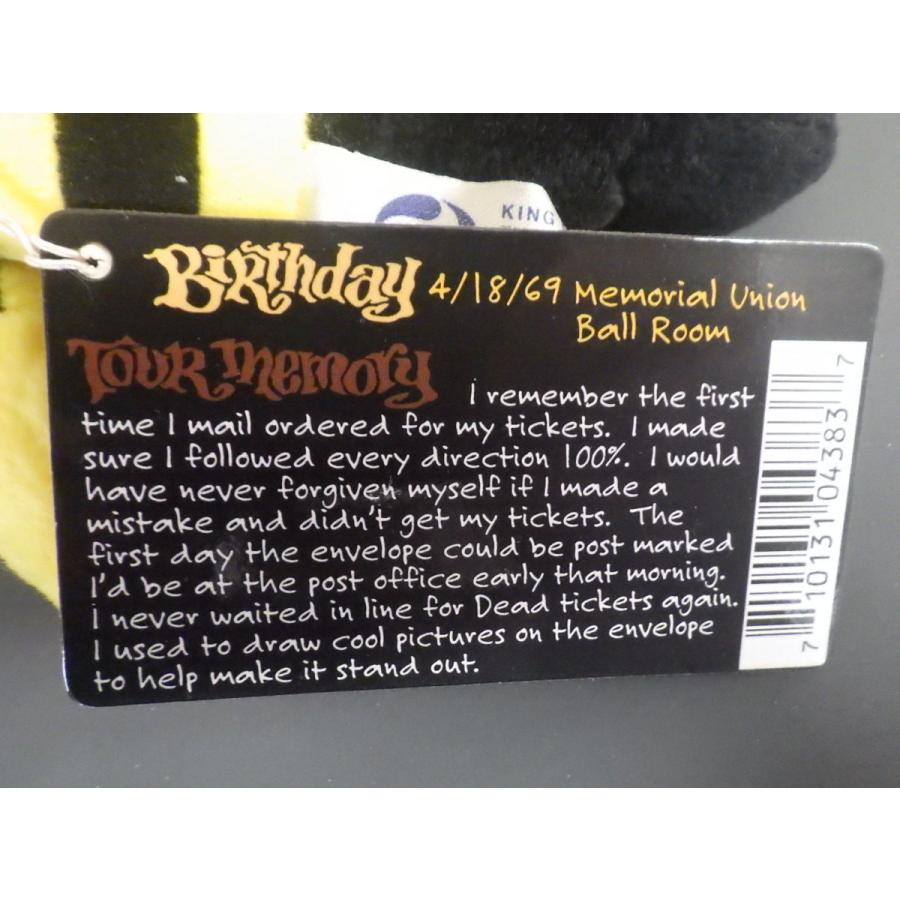 KING
Birthday 4/18/69 Memorial Union
Ball Room
Tour Memory I remember the first
time I mail ordered for my tickets. I made
sure I followed every direction 100%. I would
have never forgiven myself if I made a
mistake and didn't get my tickets. The
first day the envelope could be post marked
I'd be at the post office early that morning.
I never waited in line for Dead tickets again.
I used to draw cool pictures on the envelope
to help make it stand out.
7 10131 04383 7